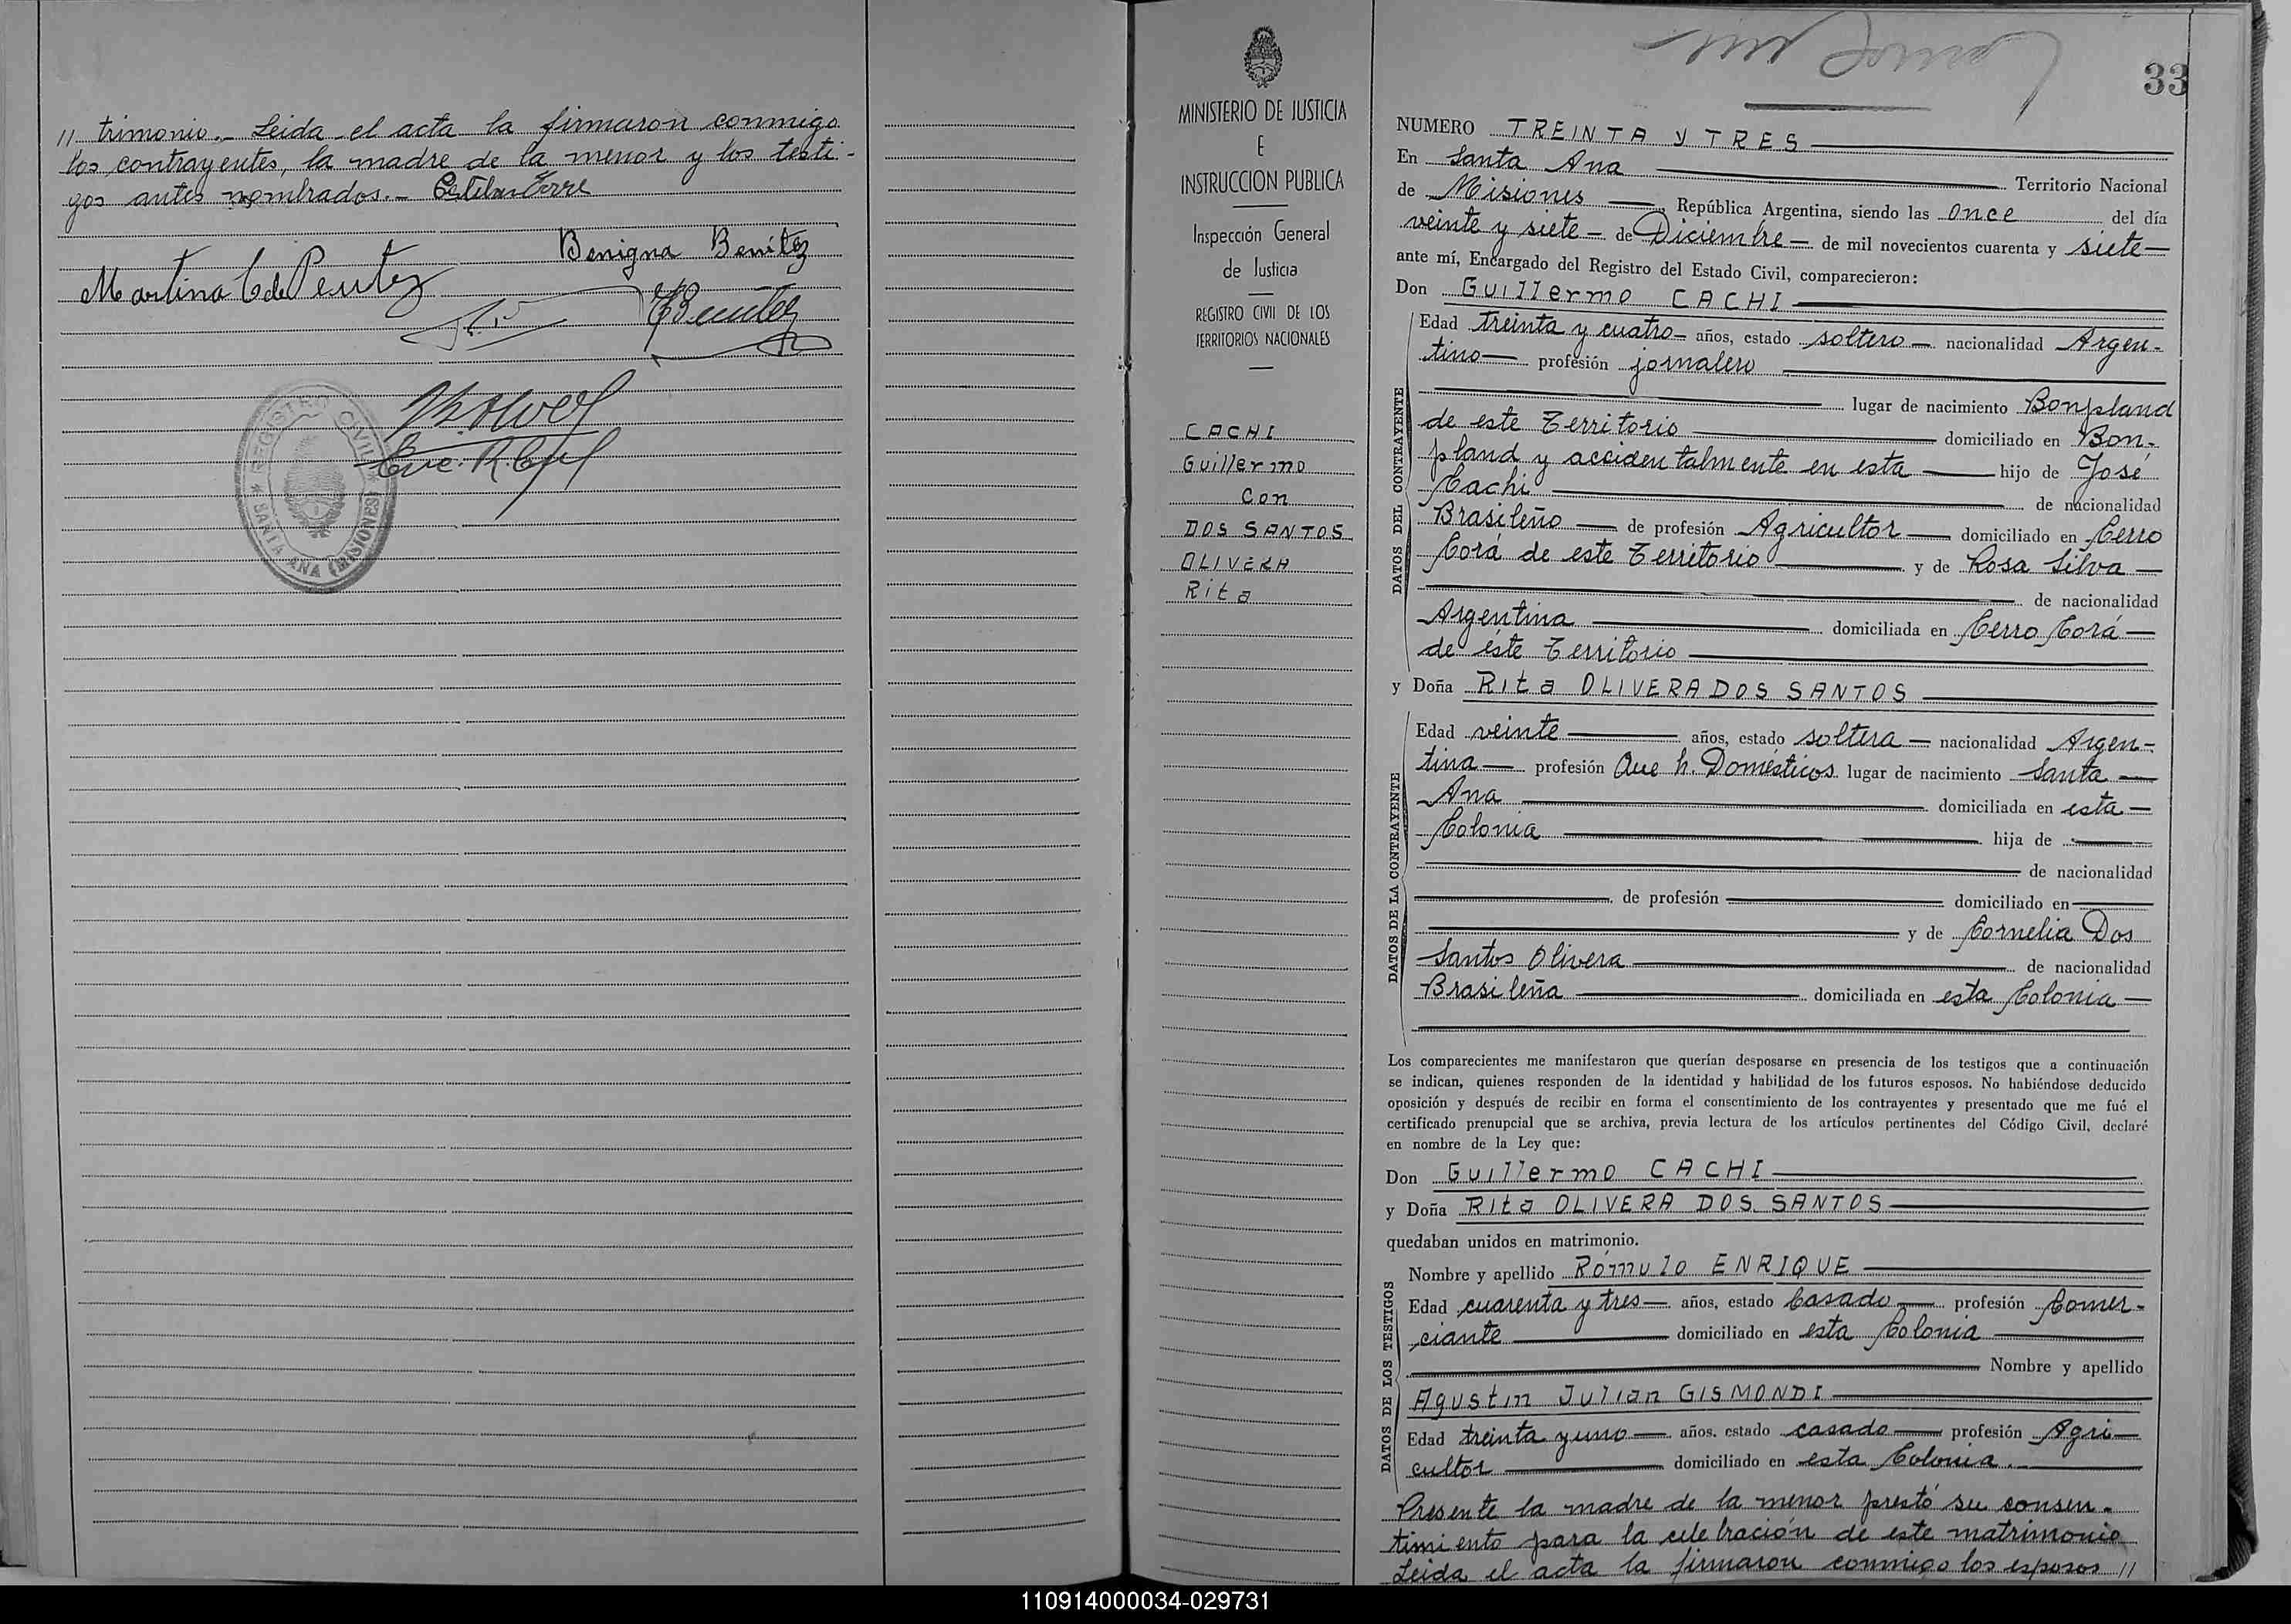 // trimonio.- Leida el acta la firmaron conmigo
los contrayentes, la madre de la menor y los testi-
gos antes nombrados.-
Benigna Benitez
Martina
REGISTRO CIVIL
* SANTA ANA (MISIONES) *
MINISTERIO DE JUSTICIA
E
INSTRUCCION PUBLICA
Inspección General
de Justicia
REGISTRO CIVIL DE LOS
TERRITORIOS NACIONALES
CACHI
Guillermo
Con
DOS SANTOS
OLIVERA
Rita
33
NUMERO TREINTA Y TRES
En Santa Ana Territorio Nacional
de Misiones República Argentina, siendo las once del día
veinte y siete - de Diciembre - de mil novecientos cuarenta y siete
ante mí, Encargado del Registro del Estado Civil, comparecieron:
Don Guillermo CACHI
DATOS DEL CONTRAYENTE
Edad treinta y cuatro - años, estado soltero - nacionalidad Argen-
tino - profesión jornalero
lugar de nacimiento Bonpland
de este Territorio domiciliado en Bon-
pland y accidentalmente en esta hijo de José
Cachi de nacionalidad
Brasileño de profesión Agricultor domiciliado en Cerro
Corá de este Territorio y de Rosa Silva
de nacionalidad
Argentina domiciliada en Cerro Corá
de éste Territorio
y Doña Rita OLIVERA DOS SANTOS
DATOS DE LA CONTRAYENTE
Edad veinte años, estado soltera - nacionalidad Argen-
tina - profesión Que h. Domésticos lugar de nacimiento Santa
Ana domiciliada en esta
Colonia hija de
de nacionalidad
de profesión domiciliado en
y de Cornelia Dos
Santos Olivera de nacionalidad
Brasileña domiciliada en esta Colonia
Los comparecientes me manifestaron que querían desposarse en presencia de los testigos que a continuación
se indican, quienes responden de la identidad y habilidad de los futuros esposos. No habiéndose deducido
oposición y después de recibir en forma el consentimiento de los contrayentes y presentado que me fué el
certificado prenupcial que se archiva, previa lectura de los artículos pertinentes del Código Civil, declaré
en nombre de la Ley que:
Don Guillermo CACHI
y Doña Rita OLIVERA DOS SANTOS
quedaban unidos en matrimonio.
DATOS DE LOS TESTIGOS
Nombre y apellido Rómulo ENRIQUE
Edad cuarenta y tres - años, estado Casado profesión Comer-
ciante domiciliado en esta Colonia
Nombre y apellido
Agustin Julian GISMONDI
Edad treinta y uno - años. estado casado profesión Agri-
cultor domiciliado en esta Colonia.
Presente la madre de la menor prestó su consen-
timiento para la celebración de este matrimonio
Leida el acta la firmaron conmigo los esposos //
110914000034-029731